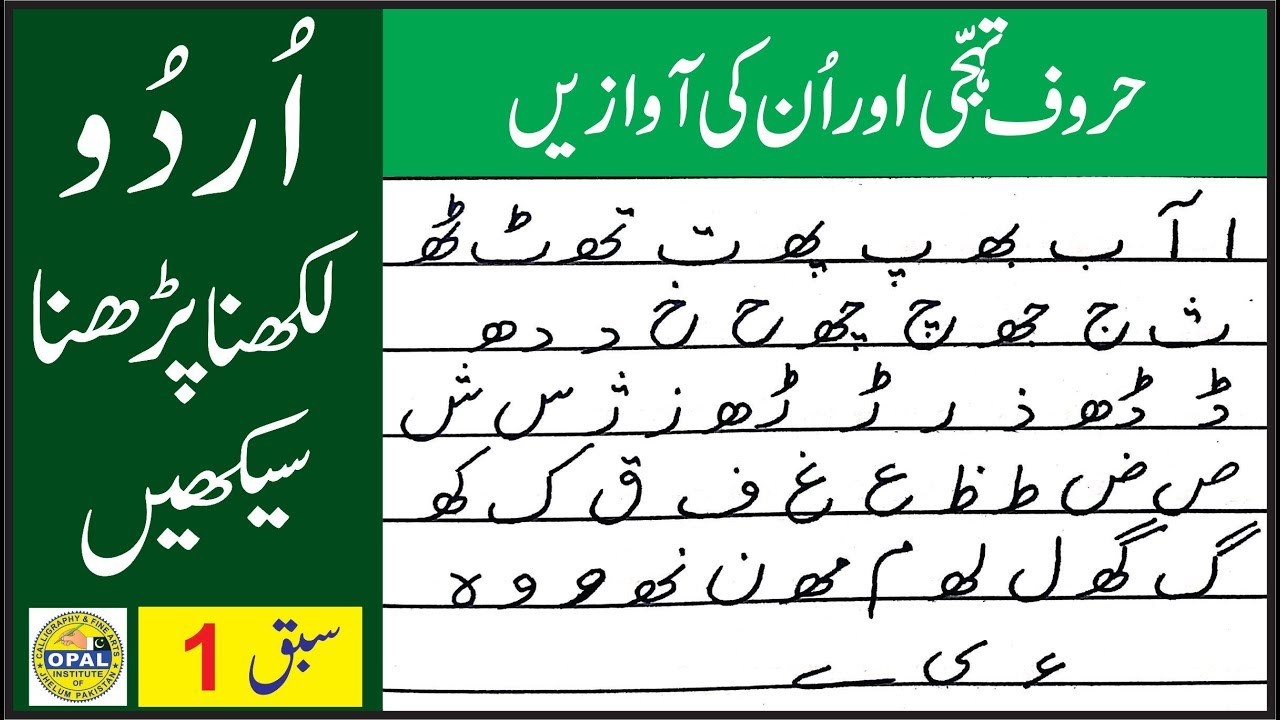 حروف تہجّی اور اُن کی آوازیں
اُردُو
لکھنا پڑھنا
سیکھیں
ا آ ب بھ پ پھ ت تھ ٹ ٹھ
ث ج جھ چ چھ ح خ د دھ
ڈ ڈھ ذ ر ڑ ڑھ ز ژ س ش
ص ض ط ظ ع غ ف ق ک کھ
گ گھ ل لھ م مھ ن نھ و و ہ
ء ی ے
سبق 1
CALLIGRAPHY & FINE ARTS
OPAL
INSTITUTE
OF
JHELUM PAKISTAN